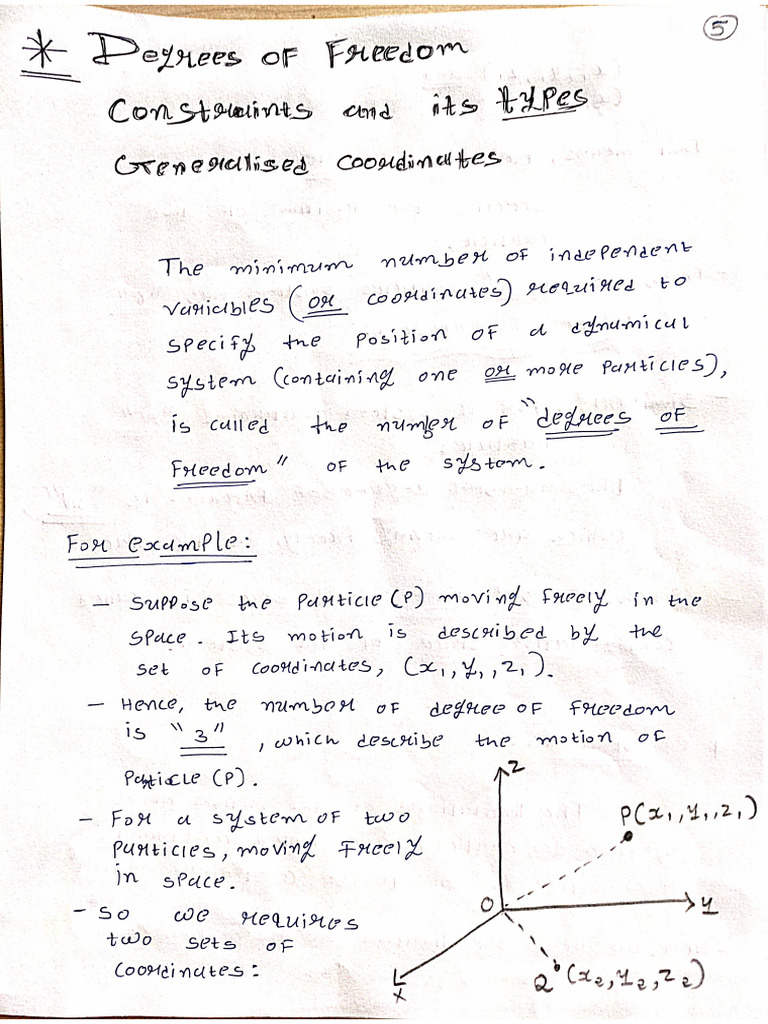 5
* Degrees of Freedom
Constraints and its types
Generalised coordinates
The minimum number of independent
variables (or coordinates) required to
specify the position of a dynamical
system (containing one or more particles),
is called the number of "degrees of
Freedom" of the system.
For example:
- Suppose the particle (P) moving freely in the
space. Its motion is described by the
set of coordinates, (x₁, y₁, z₁).
- Hence, the number of degree of freedom
is "3", which describe the motion of
Particle (P).
- For a system of two
particles, moving freely
in space.
- So we requires
two sets of
coordinates:
Z
P(x₁, y₁, z₁)
O
y
x
Q (x₂, y₂, z₂)